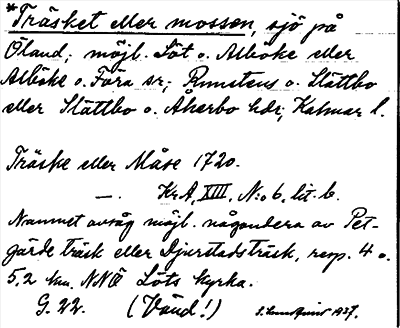 *Träsket eller mossen, sjö på
Öland; möjl. Löt o. Alböke eller
Alböke o. Föra sr; Runstens o. Slättbo
eller Slättbo o. Åkerbo hdr; Kalmar l.
Träske eller Måse 1720.
— . KrA, XIII, N:o 6, lit. b.
Namnet avsåg möjl. någondera av Pet-
gärde träsk eller Djurstadsträsk, resp. 4 o.
5,2 km. NNÖ Löts kyrka.
G. 22. (Vänd!) 1927.